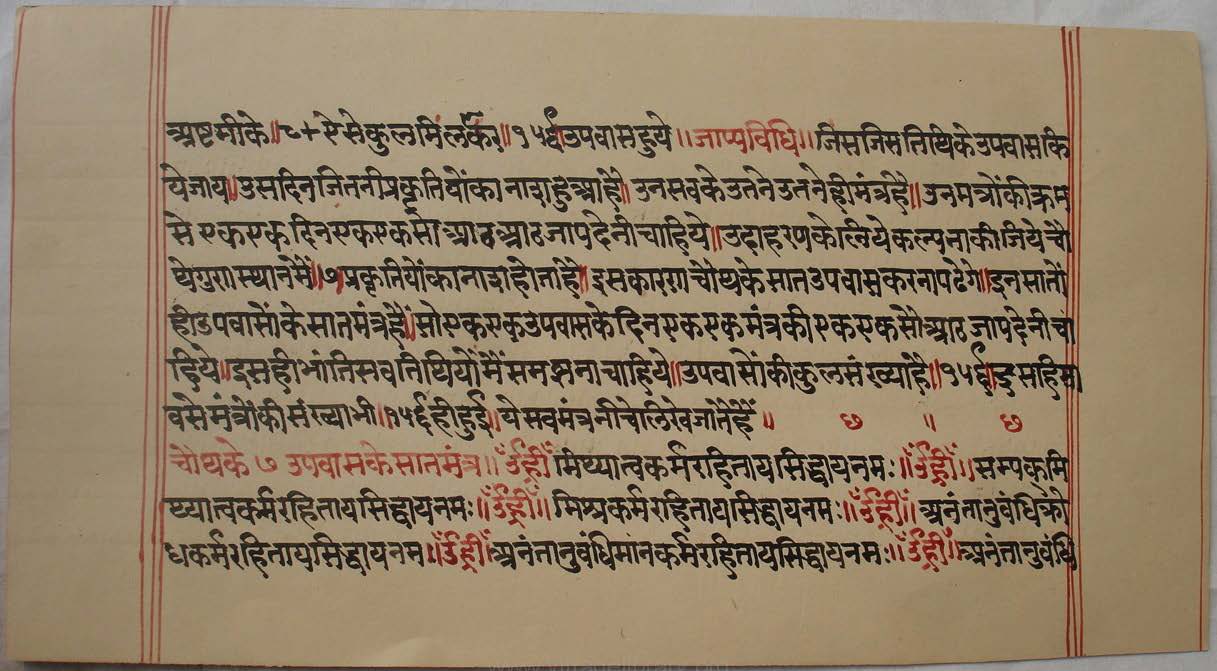 अष्टमीके॥८५ ऐसेकुलमिलकर॥१४८उपवासहुये॥जाप्यविधि॥जिसजिसतिथिकेउपवासकि
येजाय॥उसदिनजितनीप्रकृतियोंकानाशहुआहै॥उनसवकेउतनेउतनेहीमंत्रहै॥उनमत्रोंकीक्रम
सेएकएकदिनएकएकसौआठआठजापदेनीचाहिये॥उदाहरणकेलियेकल्पनाकीजियेचौ
थेगुणस्थानमें॥७प्रकृतियोंकानाशहोताहै॥इसकारणचौथकेसातउपवासकरनापढेगे॥इनसातों
हीउपवासोंकेसातमंत्रहैं॥सोएकएकउपवासकेदिनएकएकमंत्रकीएकएकसौआठजापदेनीचा
हिये॥इसहीभांतिसवतिथियोंमेंसमझनाचाहिये॥उपवासोंकीकुलसंख्याहै॥१४८॥इसहिसा
वसेमंत्रोंकीसंख्याभी॥१४८हीहुई॥येसवमंत्रनीचेलिखेजातेहैं॥ छ ॥ छ
चौथके ७ उपवासकेसातमंत्र॥ॐह्रीं॥मिथ्यात्वकर्मरहितायसिद्धायनमः॥ॐह्रीं॥सम्यक्मि
थ्यात्वकर्मरहितायसिद्धायनमः॥ॐह्रीं॥मिश्रकर्मरहितायसिद्धायनमः॥ॐह्रीं॥अनंतानुवंधिक्रो
धकर्मरहितायसिद्धायनमः॥ॐह्रीं॥अनंतानुवंधिमानकर्मरहितायसिद्धायनमः॥ॐह्रीं॥अनंतानुवंधि